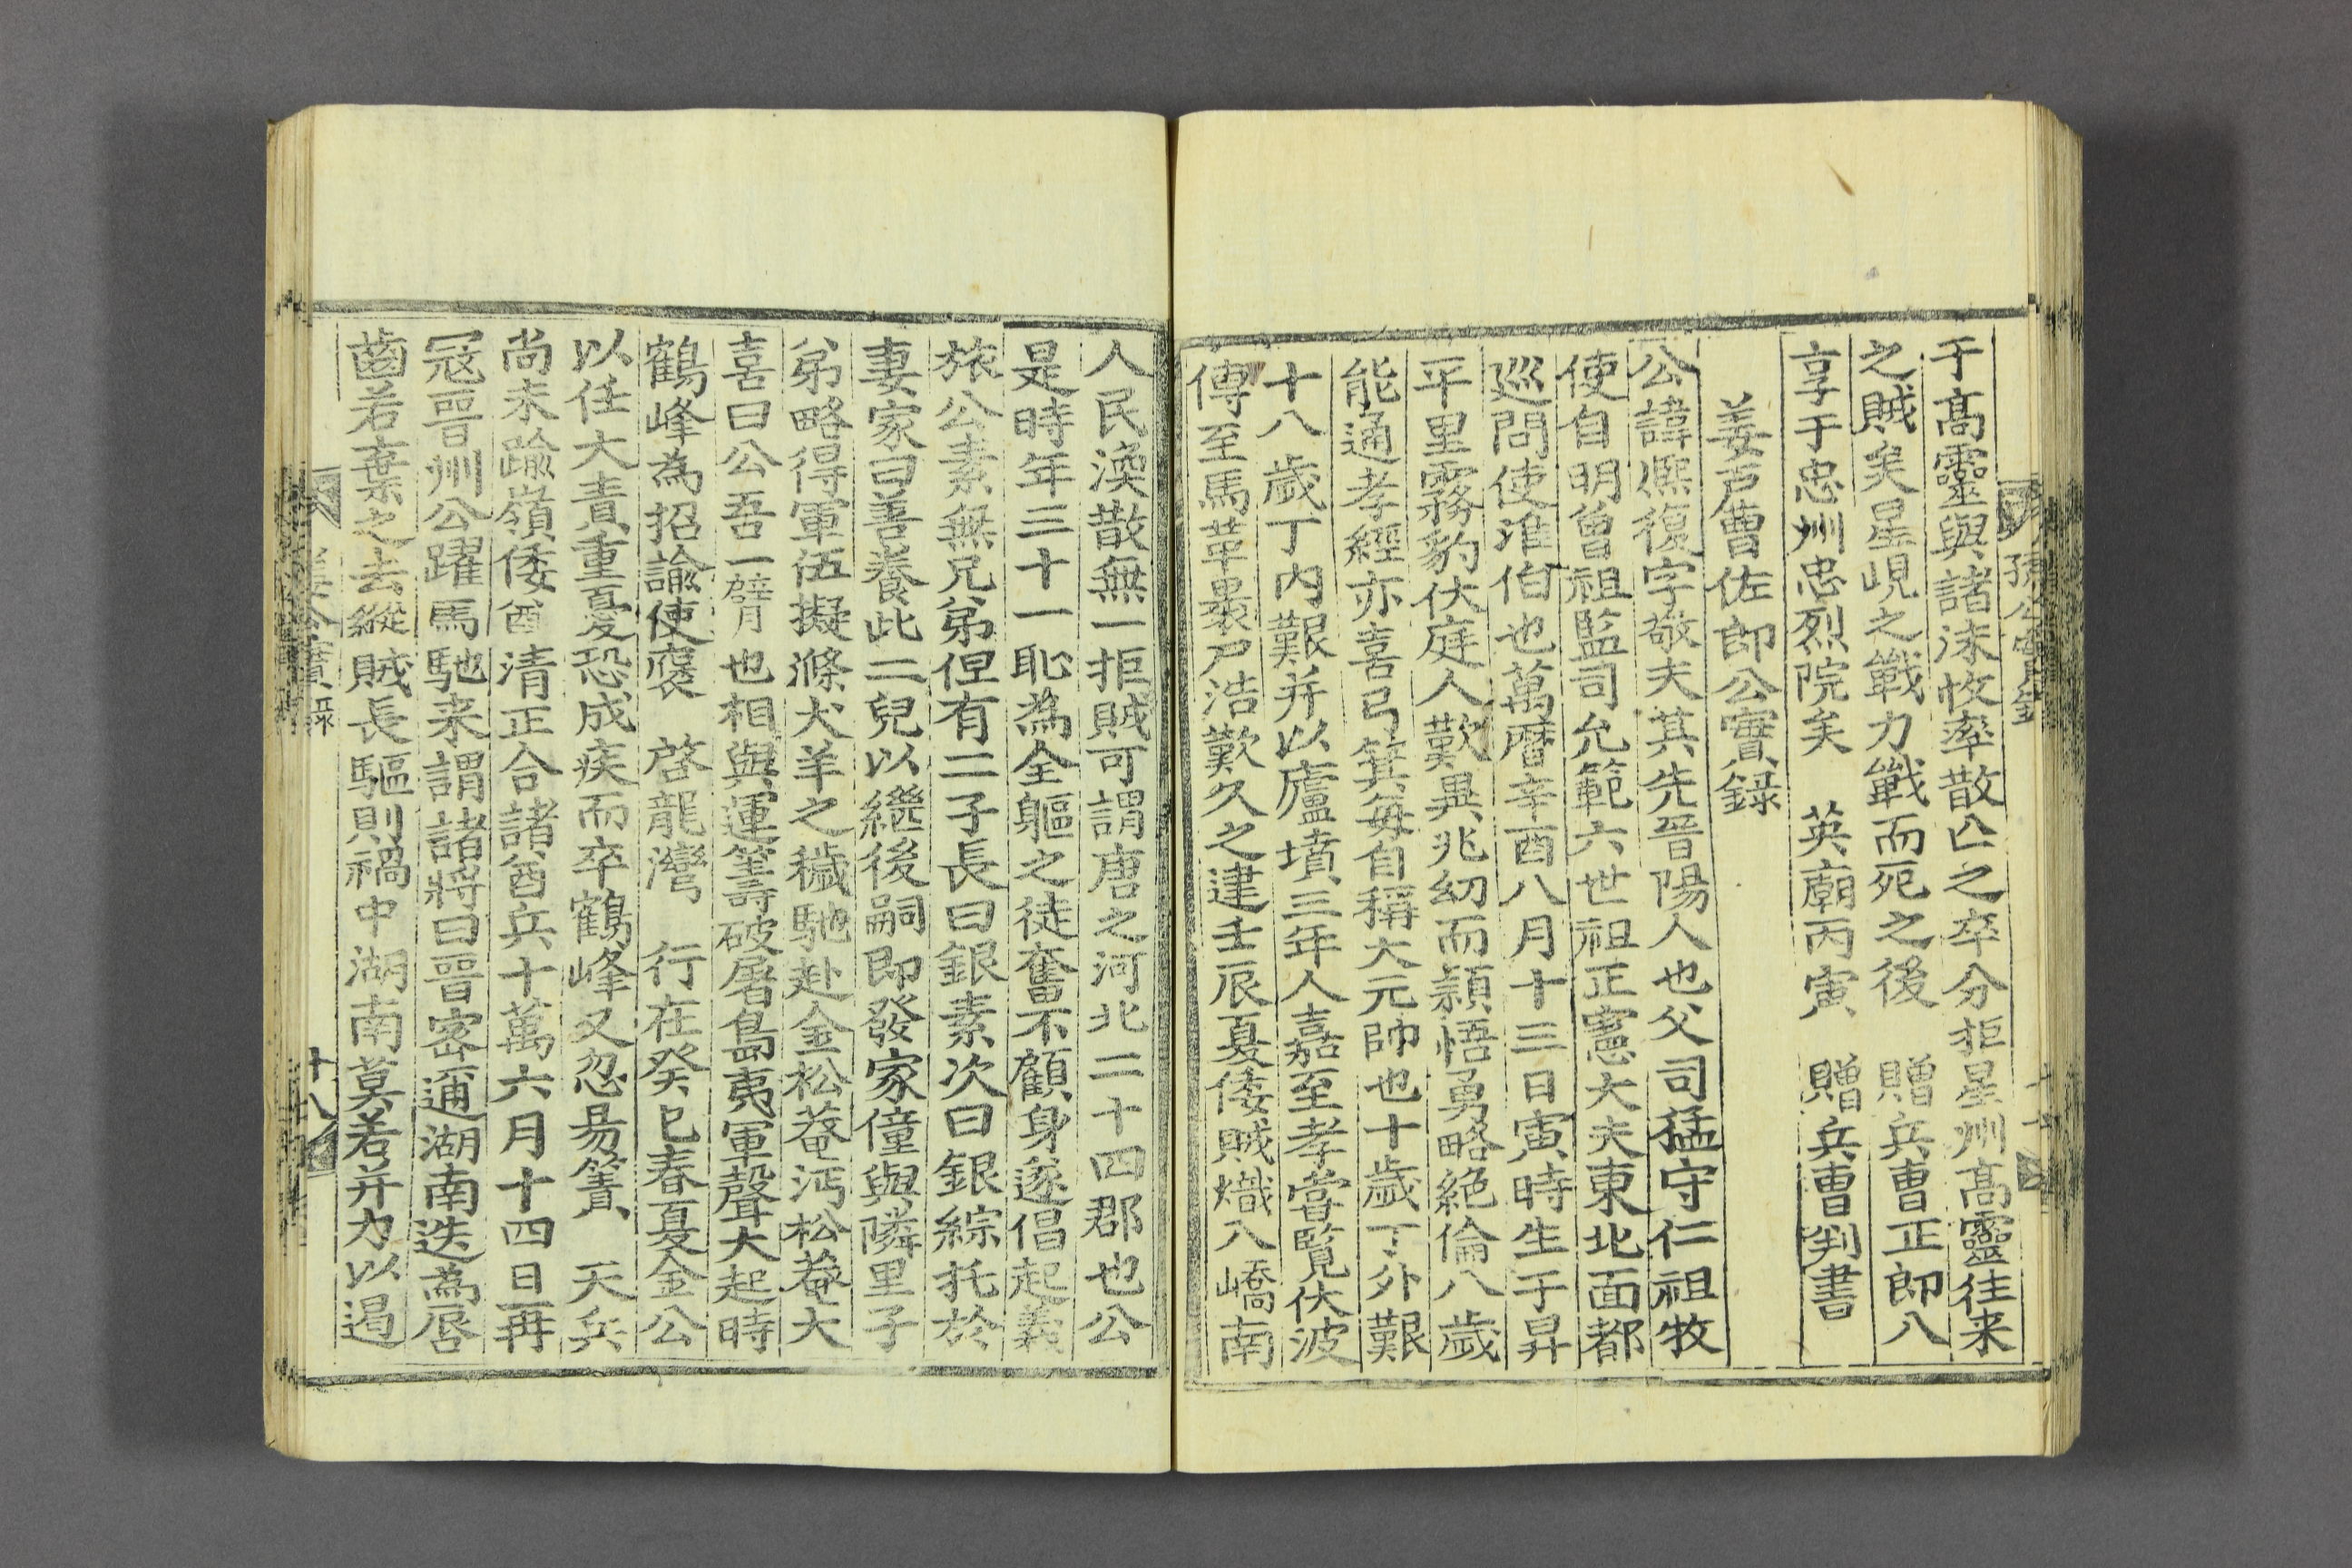 孫公實錄
于髙靈與諸洙收率散亾之卒分拒星州髙靈徃来
之賊矣星峴之戰力戰而死之後 贈兵曹正郎八
享于忠州忠烈院矣 英廟丙寅 贈兵曹判書
姜芦曹佐郎公實録
公諱熈復字敬夫其先晉陽人也父司猛守仁祖牧
使自明曽祖監司允範六世祖正憲大夫東北面都
廵問使淮伯也萬暦辛酉八月十三日寅時生于昇
平里霧豹伏庭人歎異兆幼而穎悟勇略絶倫八歲
能通孝經亦喜弓箕每自稱大元帥也十歲丁外艱
十八歲丁内艱并以廬墳三年人嘉至孝當覧伏波
傳至馬革裹尸浩歎久之逮壬辰夏倭賊熾八嶠南
人民渙散無一拒賊可謂唐之河北二十四郡也公
是時年三十一恥為全軀之徒奮不顧身遂倡起義
旅公素無兄弟但有二子長曰銀素次曰銀綜托於
妻家曰善養此二兒以繼後嗣即發家僮與隣里子
弟略得軍伍擬滌犬羊之穢馳赴金松菴沔松菴大
喜曰公吾一臂也相與運籌破屠島夷軍聲大起時
鶴峰為招諭使褒 啓龍灣 行在癸巳春夏金公
以任大責重憂恐成疾而卒鶴峰又忽易簀 天兵
尚未踰嶺倭酋清正合諸酋兵十萬六月十四日再
冦晉州公躍馬馳来謂諸將曰晉宻邇湖南迭為唇
齒若棄之去縱賊長驅則禍中湖南莫若并力以遏
姜公實録
十八